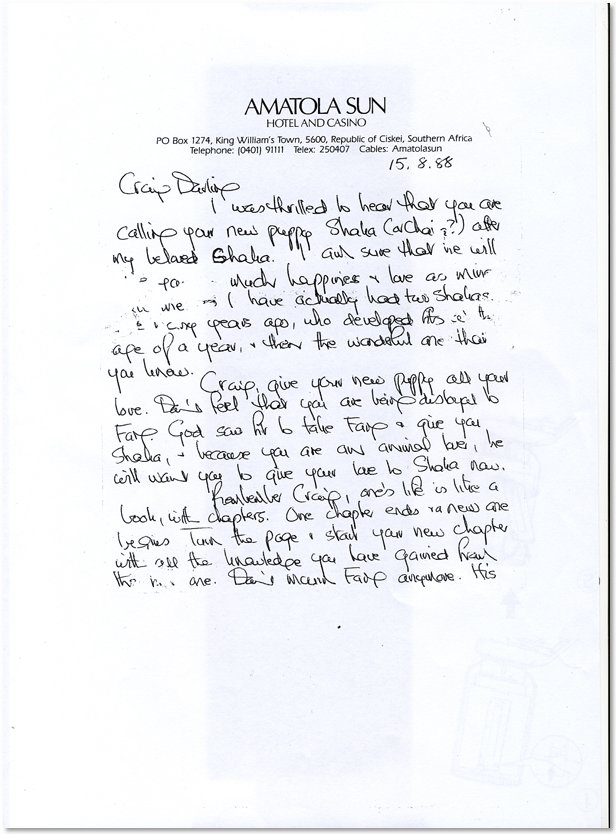 AMATOLA SUN
HOTEL AND CASINO
PO Box 1274, King William's Town, 5600, Republic of Ciskei, Southern Africa
Telephone: (0401) 91111 Telex: 250407 Cables: Amatolasun
15. 8. 88
Craig Darling
I was thrilled to hear that you are
calling your new puppy Shaka (or Chaka ??) after
my beloved Shaka. I am sure that he will
much happiness + love as mine
me I have actually had two Shakas.
years ago, who developed fits at the
age of a year, + then the wonderful one that
you knew.
Craig, give your new puppy all your
love. Don't feel that you are being disloyal to
Fang. God saw fit to take Fang + give you
Shaka, + because you are an animal lover, he
will want you to give your love to Shaka now.
Remember Craig, one's life is like a
book, with chapters. One chapter ends + a new one
begins. Turn the page + start your new chapter
with all the knowledge you have gained from
the one. Don't mourn Fang anymore. His